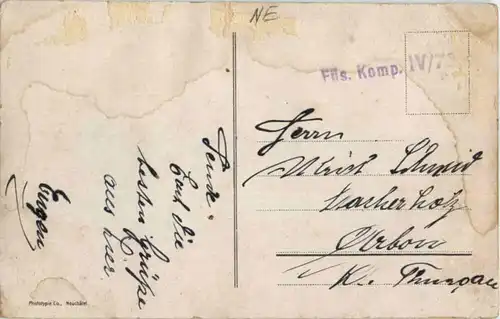 NE
Füs. Komp. IV/73
Sende
Euch die
besten Grüße
aus hier.
Eugen
Herrn
Ulrich Schmid
Arbon
Kt. Thurgau
Phototypie Co., Neuchâtel